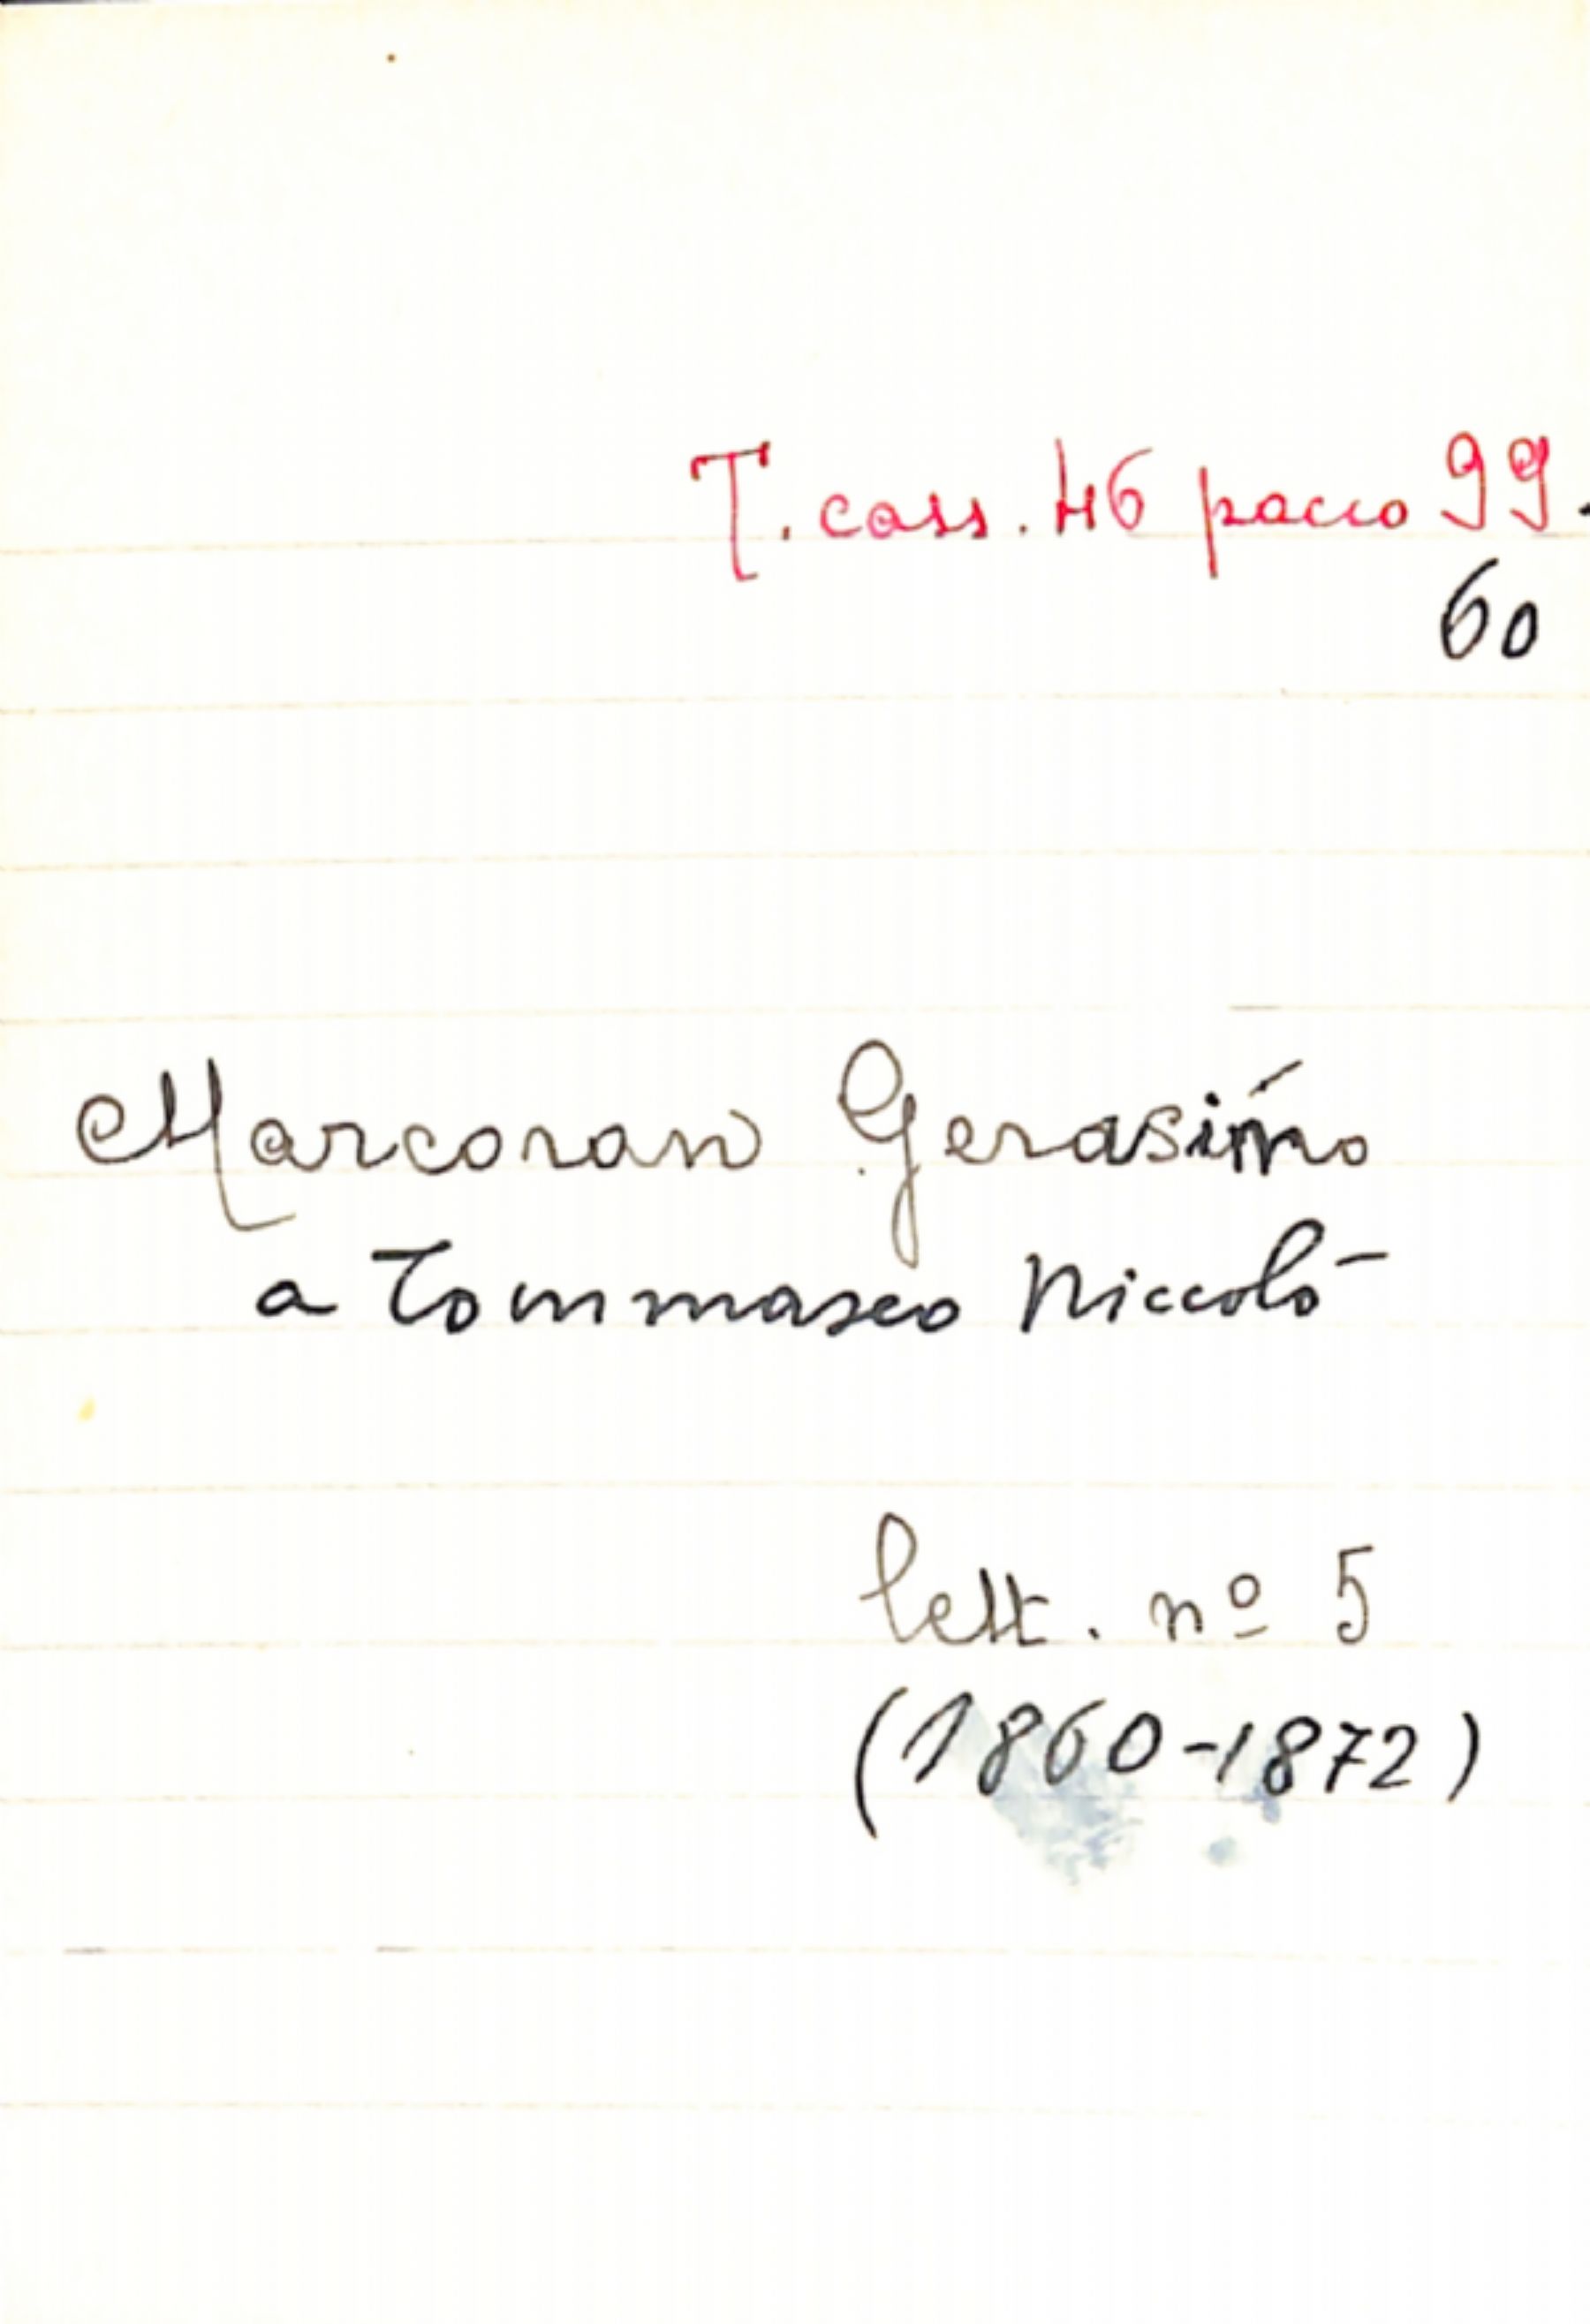 T. cass. 46 pacco 99.
60
Marcoran Gerasimo
a Tommaseo Niccolò
lett. nº 5
(1860-1872)